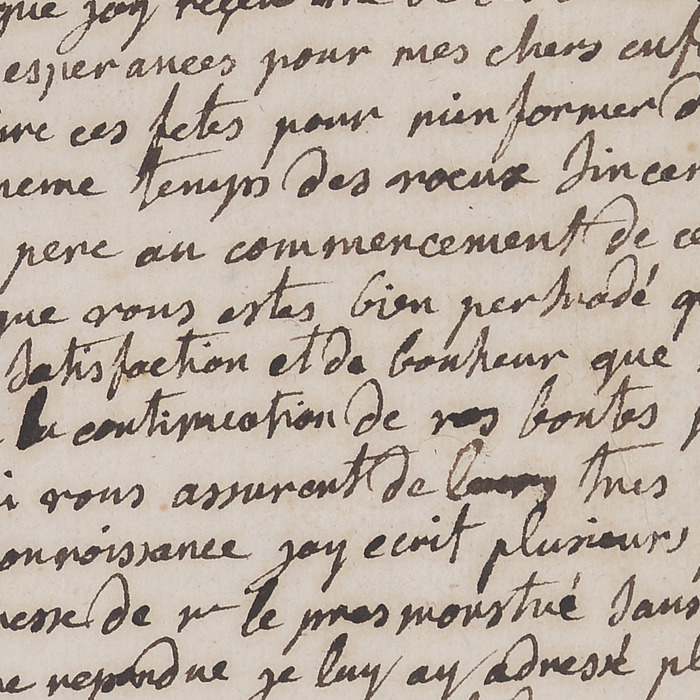 que jay reçeu
esperances pour mes chers enf
ces fetes pour minformer d
meme temps des voeux sincer
pere au commencement de ce
que vous estes bien persuadé q
satisfaction et de bonheur que
la continuation de vos bontes p
i vous assurent de leurs tres
onnoissance jay ecrit plusieurs
esse de mr le presmonstué sans
repondue je luy ay adressé pl